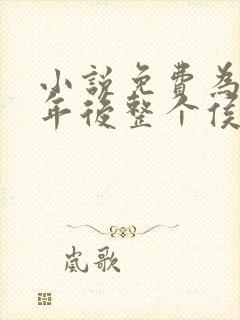 小説免費為
年後整个侯
嵐歌